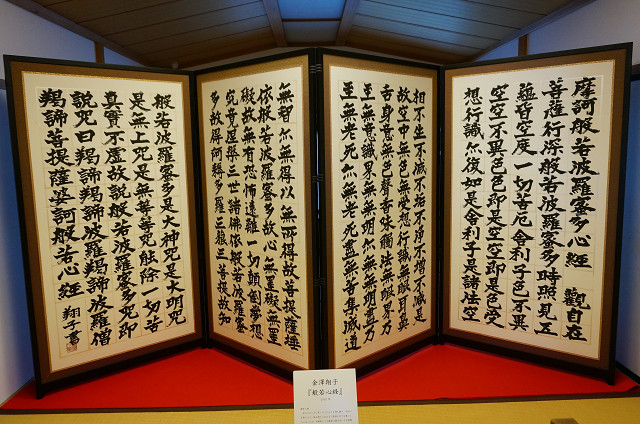 摩訶般若波羅蜜多心経 觀自在
菩薩行深般若波羅蜜多時照見五
蘊皆空度一切苦厄舎利子色不異
空空不異色色即是空空即是色受
想行識亦復如是舎利子是諸法空
相不生不滅不垢不浄不増不減是
故空中無色無受想行識無眼耳鼻
舌身意無色聲香味觸法無眼界乃
至無意識界無無明亦無無明盡乃
至無老死亦無老死盡無苦集滅道
無智亦無得以無所得故菩提薩埵
依般若波羅蜜多故心無罣礙無罣
礙故無有恐怖遠離一切顛倒夢想
究竟涅槃三世諸佛依般若波羅蜜
多故得阿耨多羅三藐三菩提故知
般若波羅蜜多是大神咒是大明咒
是無上咒是無等等咒能除一切苦
真實不虚故説般若波羅蜜多咒即
説咒曰羯諦羯諦波羅羯諦波羅僧
羯諦菩提薩婆訶般若心経 翔子書
金澤翔子
『般若心経』